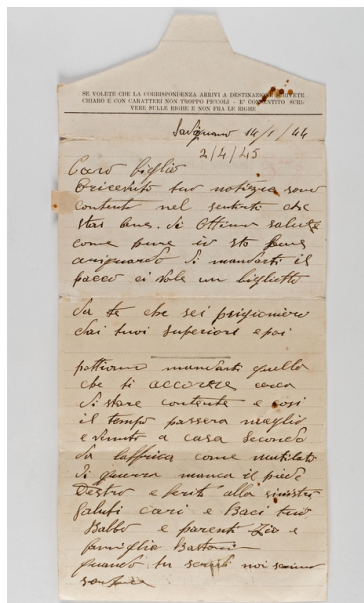 SE VOLETE CHE LA CORRISPONDENZA ARRIVI A DESTINAZIONE SCRIVETE
CHIARO E CON CARATTERI NON TROPPO PICCOLI - E' CONSENTITO SCRI-
VERE SULLE RIGHE E NON FRA LE RIGHE
14/1/44
2/4/45
Caro figlio
Oricevuto tuo notizia sono
contento nel sentire che
stai bene. di Ottima salute
come pure io sto bene
ariguardo di mandarti il
pacco ci vole un biglietto
da te che sei prigioniero
dai tuoi superiore e poi
mandarti quello
che ti accorre cerca
di stare contento e cosi
il tempo passera meglio
e venuto a casa Secondo
da laffrica come mutilato
di guerra manca il piede
Destro e ferito alla sinistra
Saluti cari e Baci tuo
Babbo e parenti Zio e
famiglia
quando tu scrivi noi siamo